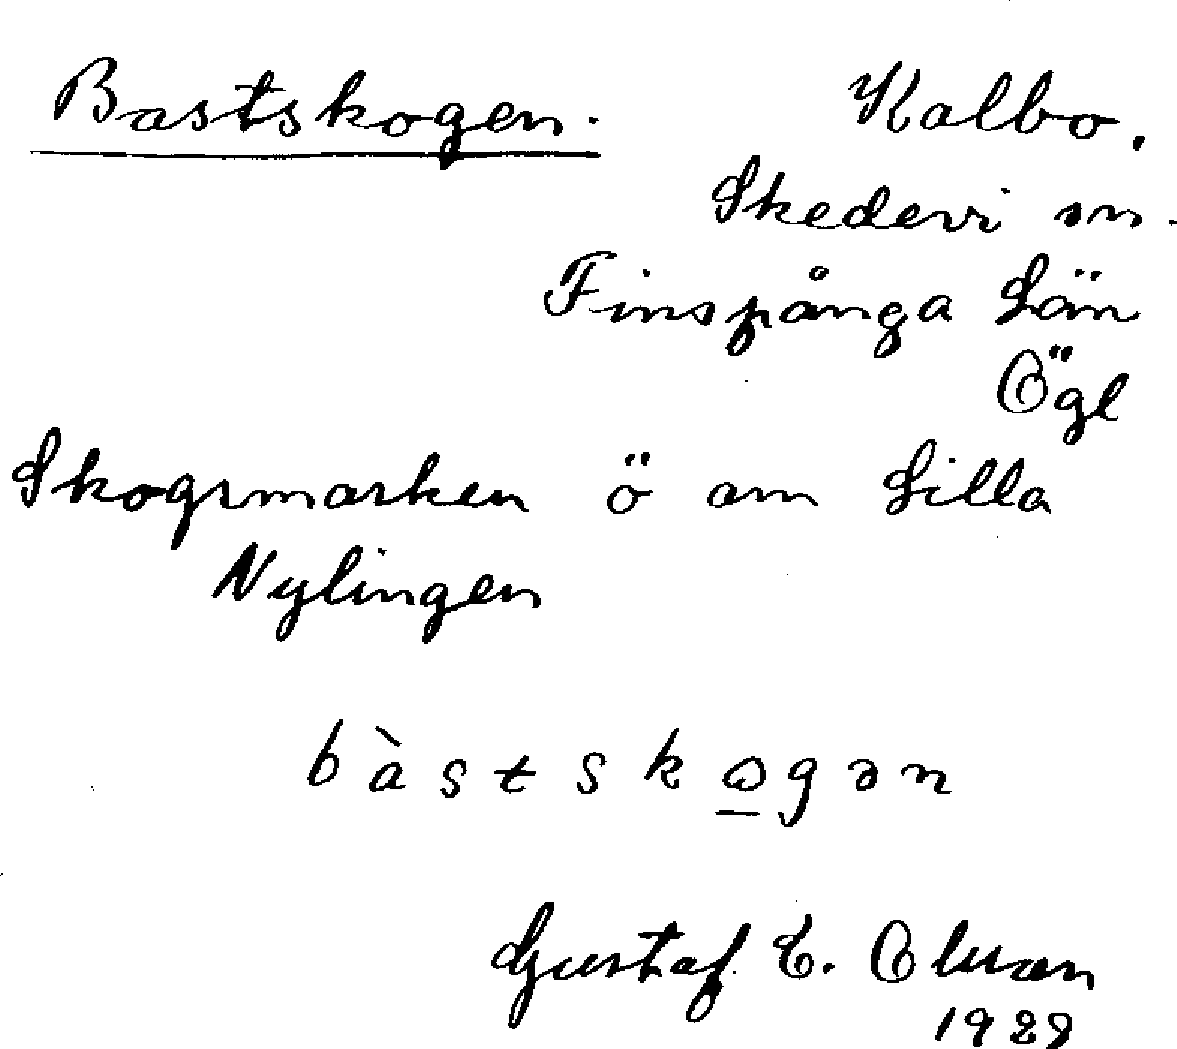 Bastskogen. Kalbo.
Skedevi sn.
Finspånga Län
Ögl
Skogsmarken ö om Lilla
Nylingen
bàstskogən
Gustaf E.
1928